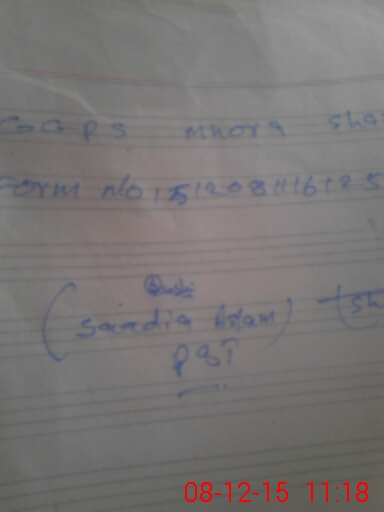 GGPS mhora sha
Form No: 512081116125
(Saadia Aslam) (sh
PST
08-12-15 11:18